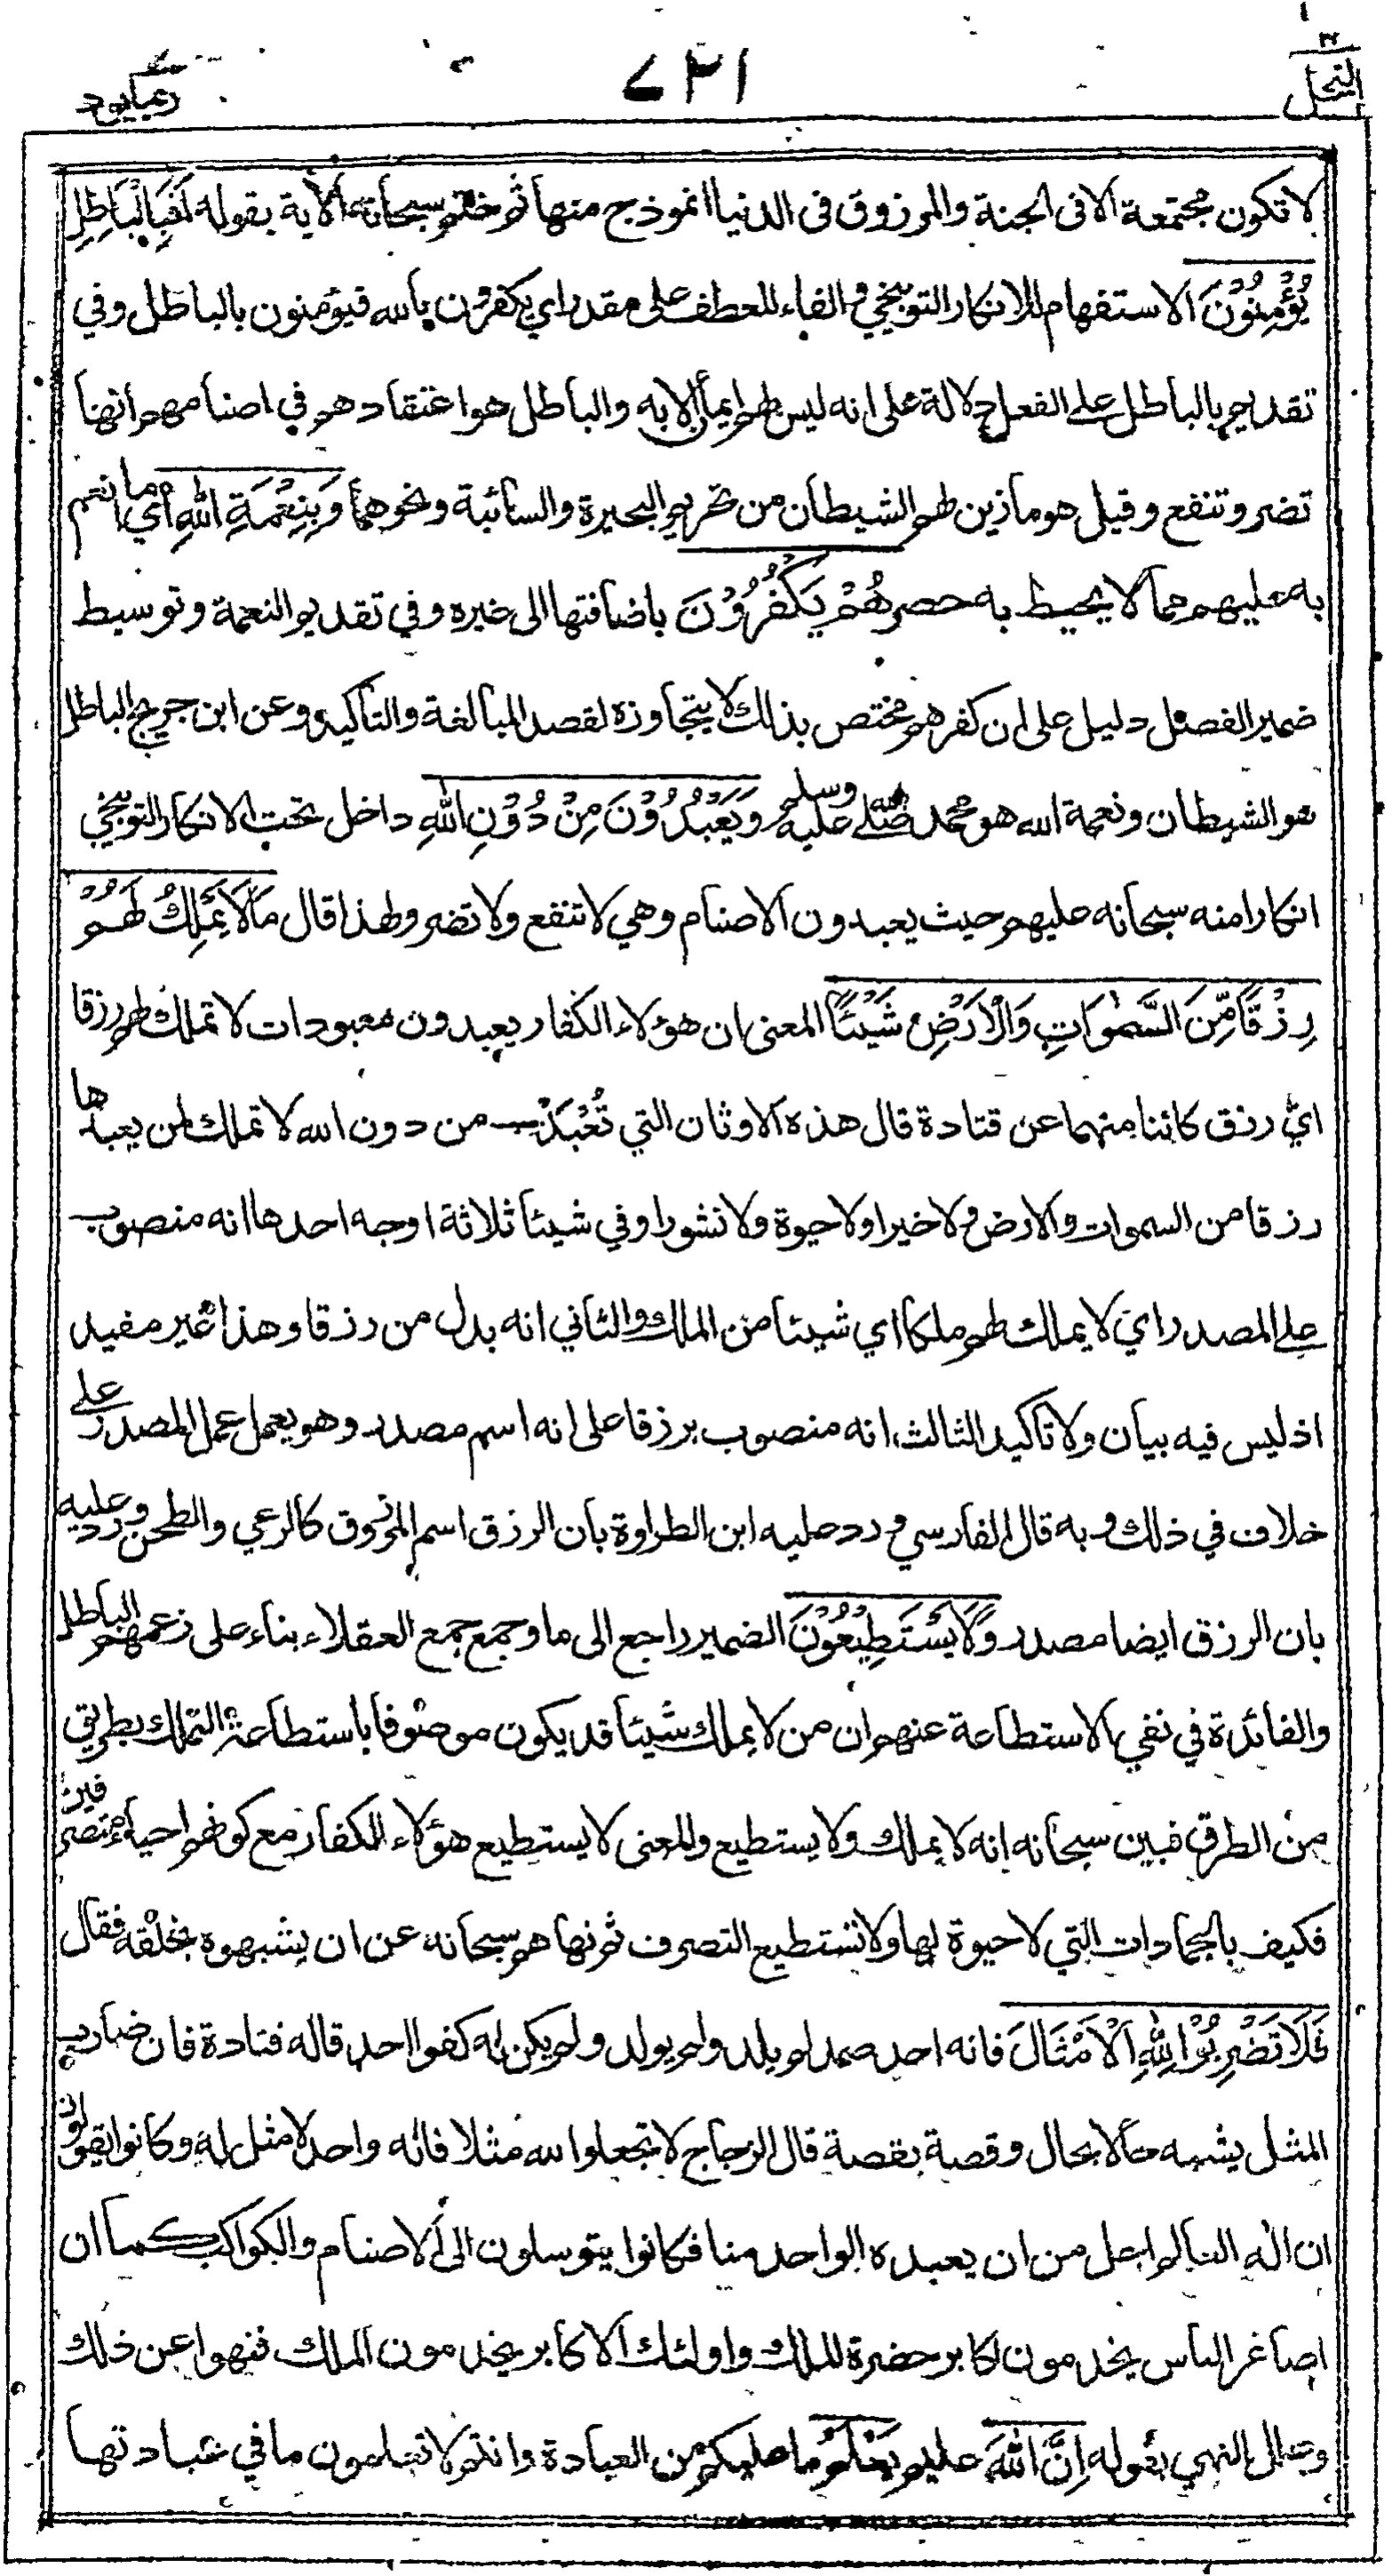 النحل ٧٣١ ربما يود
لا تكون مجتمعة الا فى الجنة والمرزوق فى الدنيا انموذج منها ثم ختم سبحانه الآية بقوله اَفَبِالْبَاطِلِ
يُؤْمِنُوْنَ الاستفهام للانكار التوبيخي والفاء للعطف على مقدر اي يكفرون بالله فيؤمنون بالباطل وفي
تقديم بالباطل على الفعل دلالة على انه ليس لهم ايمان الا به والباطل هو اعتقادهم في اصنامهم انها
تضر وتنفع وقيل هو ما زين لهم الشيطان من تحريم البحيرة والسائبة ونحوهما وَبِنِعْمَةِ اللهِ اي ما انعم
به عليهم مما لا يحيط به حصر هُمْ يَكْفُرُوْنَ باضافتها الى غيره وفي تقديم النعمة وتوسيط
ضمير الفصل دليل على ان كفرهم مختص بذلك لا يتجاوزه لقصد المبالغة والتأكيد وعن ابن جريج الباطل
هو الشيطان ونعمة الله هو محمد صلى الله عليه وسلم وَيَعْبُدُوْنَ مِنْ دُوْنِ اللهِ داخل تحت الانكار التوبيخي
انكارا منه سبحانه عليهم حيث يعبدون الاصنام وهي لا تنفع ولا تضر ولهذا قال مَا لَا يَمْلِكُ لَهُمْ
رِزْقًا مِّنَ السَّمٰوَاتِ وَالْاَرْضِ شَيْئًا المعنى ان هؤلاء الكفار يعبدون معبودات لا تملك لهم رزقا
ايّ رزق كائنا منهما عن قتادة قال هذه الاوثان التي تُعْبَدُ من دون الله لا تملك لمن يعبدها
رزقا من السموات والارض ولا خيرا ولا حيوة ولا نشورا وفي شيئا ثلاثة اوجه احدها انه منصوب
على المصدر اي لا يملك لهم ملكا اي شيئا من الملك والثاني انه بدل من رزقا وهذا غير مفيد
اذ ليس فيه بيان ولا تاكيد الثالث انه منصوب برزقا على انه اسم مصدر وهو يعمل عمل المصدر على
خلاف في ذلك وبه قال الفارسي ورد عليه ابن الطراوة بان الرزق اسم المرزوق كالرعي والطحن ورد عليه
بان الرزق ايضا مصدر وَلَا يَسْتَطِيْعُوْنَ الضمير راجع الى ما وجمع جمع العقلاء بناء على زعمهم الباطل
والفائدة في نفي الاستطاعة عنهم ان من لا يملك شيئا قد يكون موصوفا باستطاعة التملك بطريق
من الطرق فبين سبحانه انه لا يملك ولا يستطيع والمعنى لا يستطيع هؤلاء الكفار مع كونهم احياء متصرفين
فكيف بالجمادات التي لا حيوة لها ولا تستطيع التصرف ثم نهاهم سبحانه عن ان يشبهوه بخلقه فقال
فَلَا تَضْرِبُوْا لِلّٰهِ الْاَمْثَالَ فانه احد صمد لم يلد ولم يولد ولم يكن له كفوا احد قاله قتادة فان ضارب
المثل يشبه حالا بحال وقصة بقصة قال الزجاج لا تجعلوا لله مثلا فانه واحد لا مثل له وكانوا يقولون
ان اله العالم اجل من ان يعبده الواحد منا فكانوا يتوسلون الى الاصنام والكواكب كما ان
اصاغر الناس يخدمون اكابر حضرة الملك واولئك الاكابر يخدمون الملك فنهوا عن ذلك
وعلل النهي بقوله اِنَّ اللهَ عليم يَعْلَمُ ما عليكم من العبادة وانتم لا تعلمون ما في عبادتها